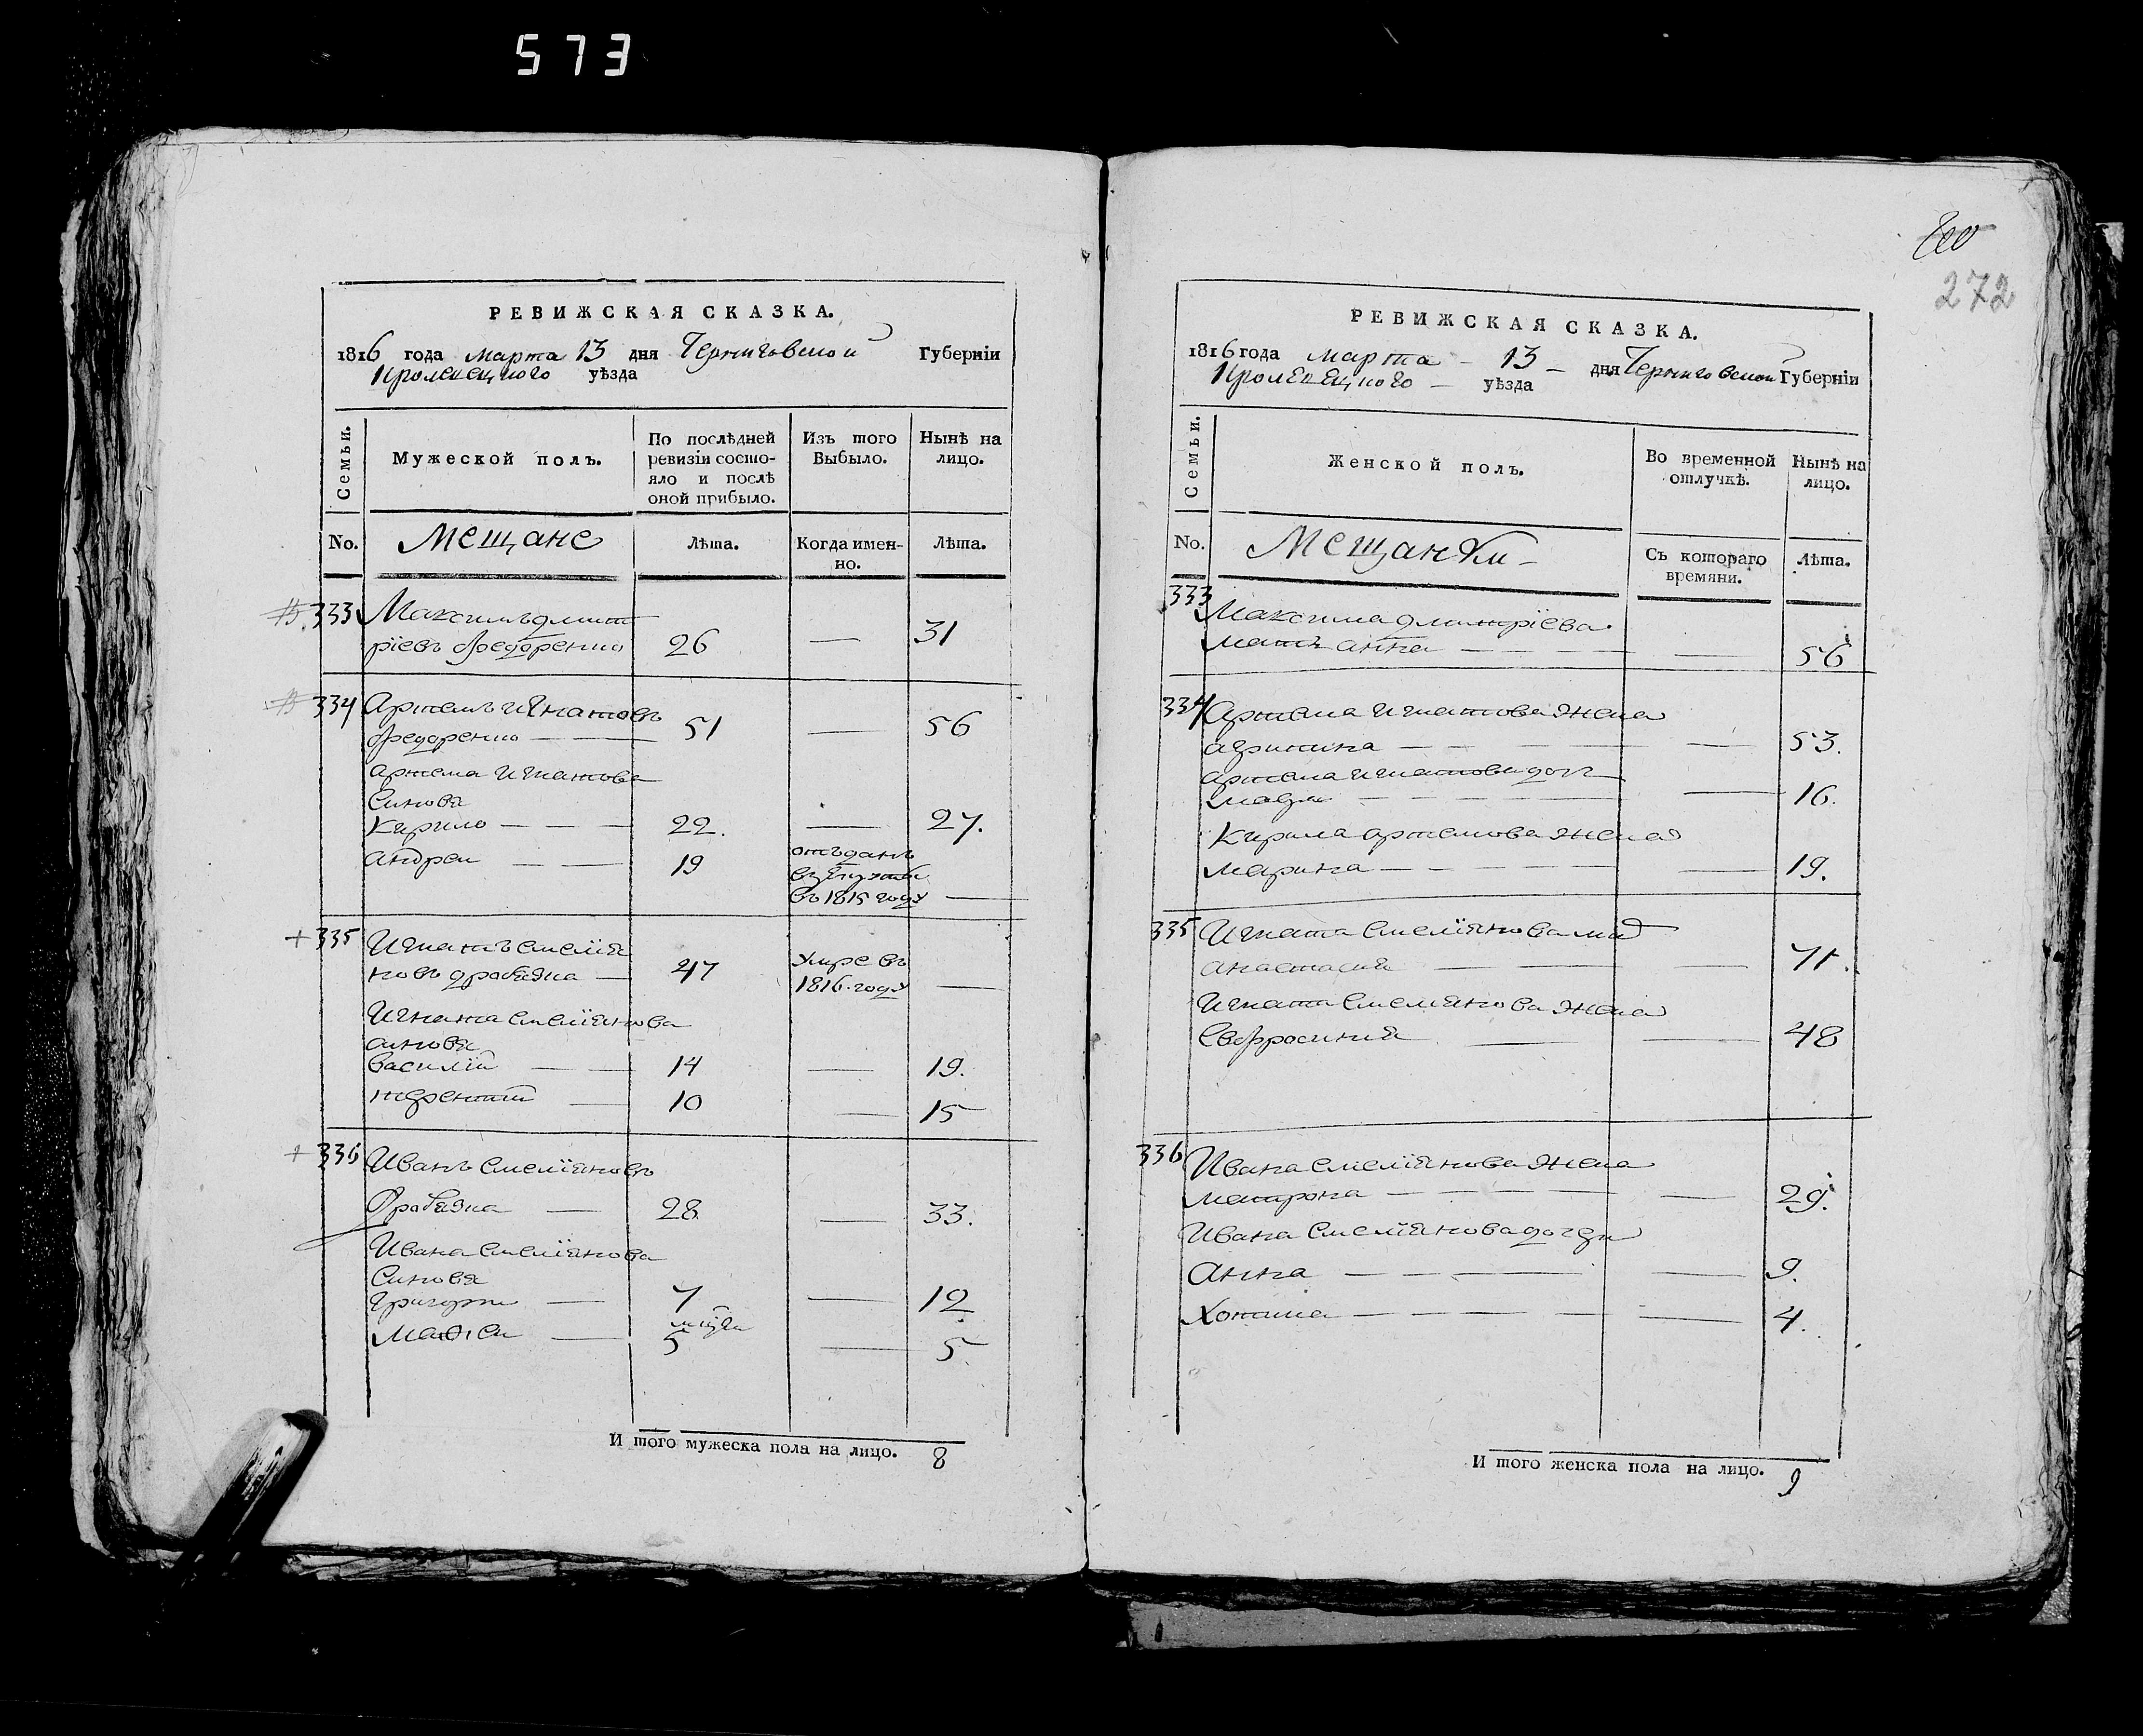 573
272
РЕВИЖСКАЯ СКАЗКА.
1816 года марта 13 дня Черниговской Губерніи
Кролевецкого уѣзда
Семьи.
Мужеской полъ.
По послѣдней
ревизіи состо-
яло и послѣ
оной прибыло.
Изъ того
Выбыло.
Нынѣ на
лицо.
No.
Мещане
Лѣта.
Когда имен-
но.
Лѣта.
333 Максимъ дмит
ріевъ федоренко 26 — 31
334 Артемъ игнатовъ
федоренко — — 51 — 56
артема игнатова
синовя
Кирило — — — 22. — 27.
андреи — — 19 отъданъ
въ
въ 1815 году —
335 Игнатъ емелія
новъ — 47 умре въ
1816 году —
Игната емеліянова
синовя
василій — — 14 — 19.
терентій — 10 — 15
336 Иванъ емеліяновъ
— 28 — 33.
Ивана емеліянова
синовя
григорій — 7 — 12
Матвеи — 5 — 5.
И того мужеска пола на лицо. 8
РЕВИЖСКАЯ СКАЗКА.
1816 года марта — 13 — дня Черниговской Губерніи
Кролевецкого — уѣзда
Семьи.
Женской полъ.
Во временной
отлучкѣ.
Нынѣ на
лицо.
No.
Мещанки —
Съ котораго
времяни.
Лѣта.
333 Максима дмитріева
мать анна — — — — — 56
334 Артема игнатова жена
агрипина — — — — — 53.
артема игнатова дочь
— — — — — 16.
Кирила артемова жена
марина — — — — 19.
335 Игната емеліянова
анастасия — — — 71.
Игната емелянова жена
Евфросиния — — 48
336 Ивана емеліянова жена
матрона — — — — — 29.
Ивана емеліянова дочери
Анна — — — — — 9.
— — — — — — 4.
И того женска пола на лицо. 9